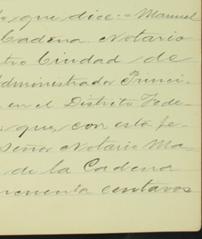 que dice:- Manuel
Cadena Notario
Ciudad de
Administrador Princi-
en el Distrito Fede-
que, con esta fe-
Señor Notario Ma-
de la Cadena
cuenta centavos